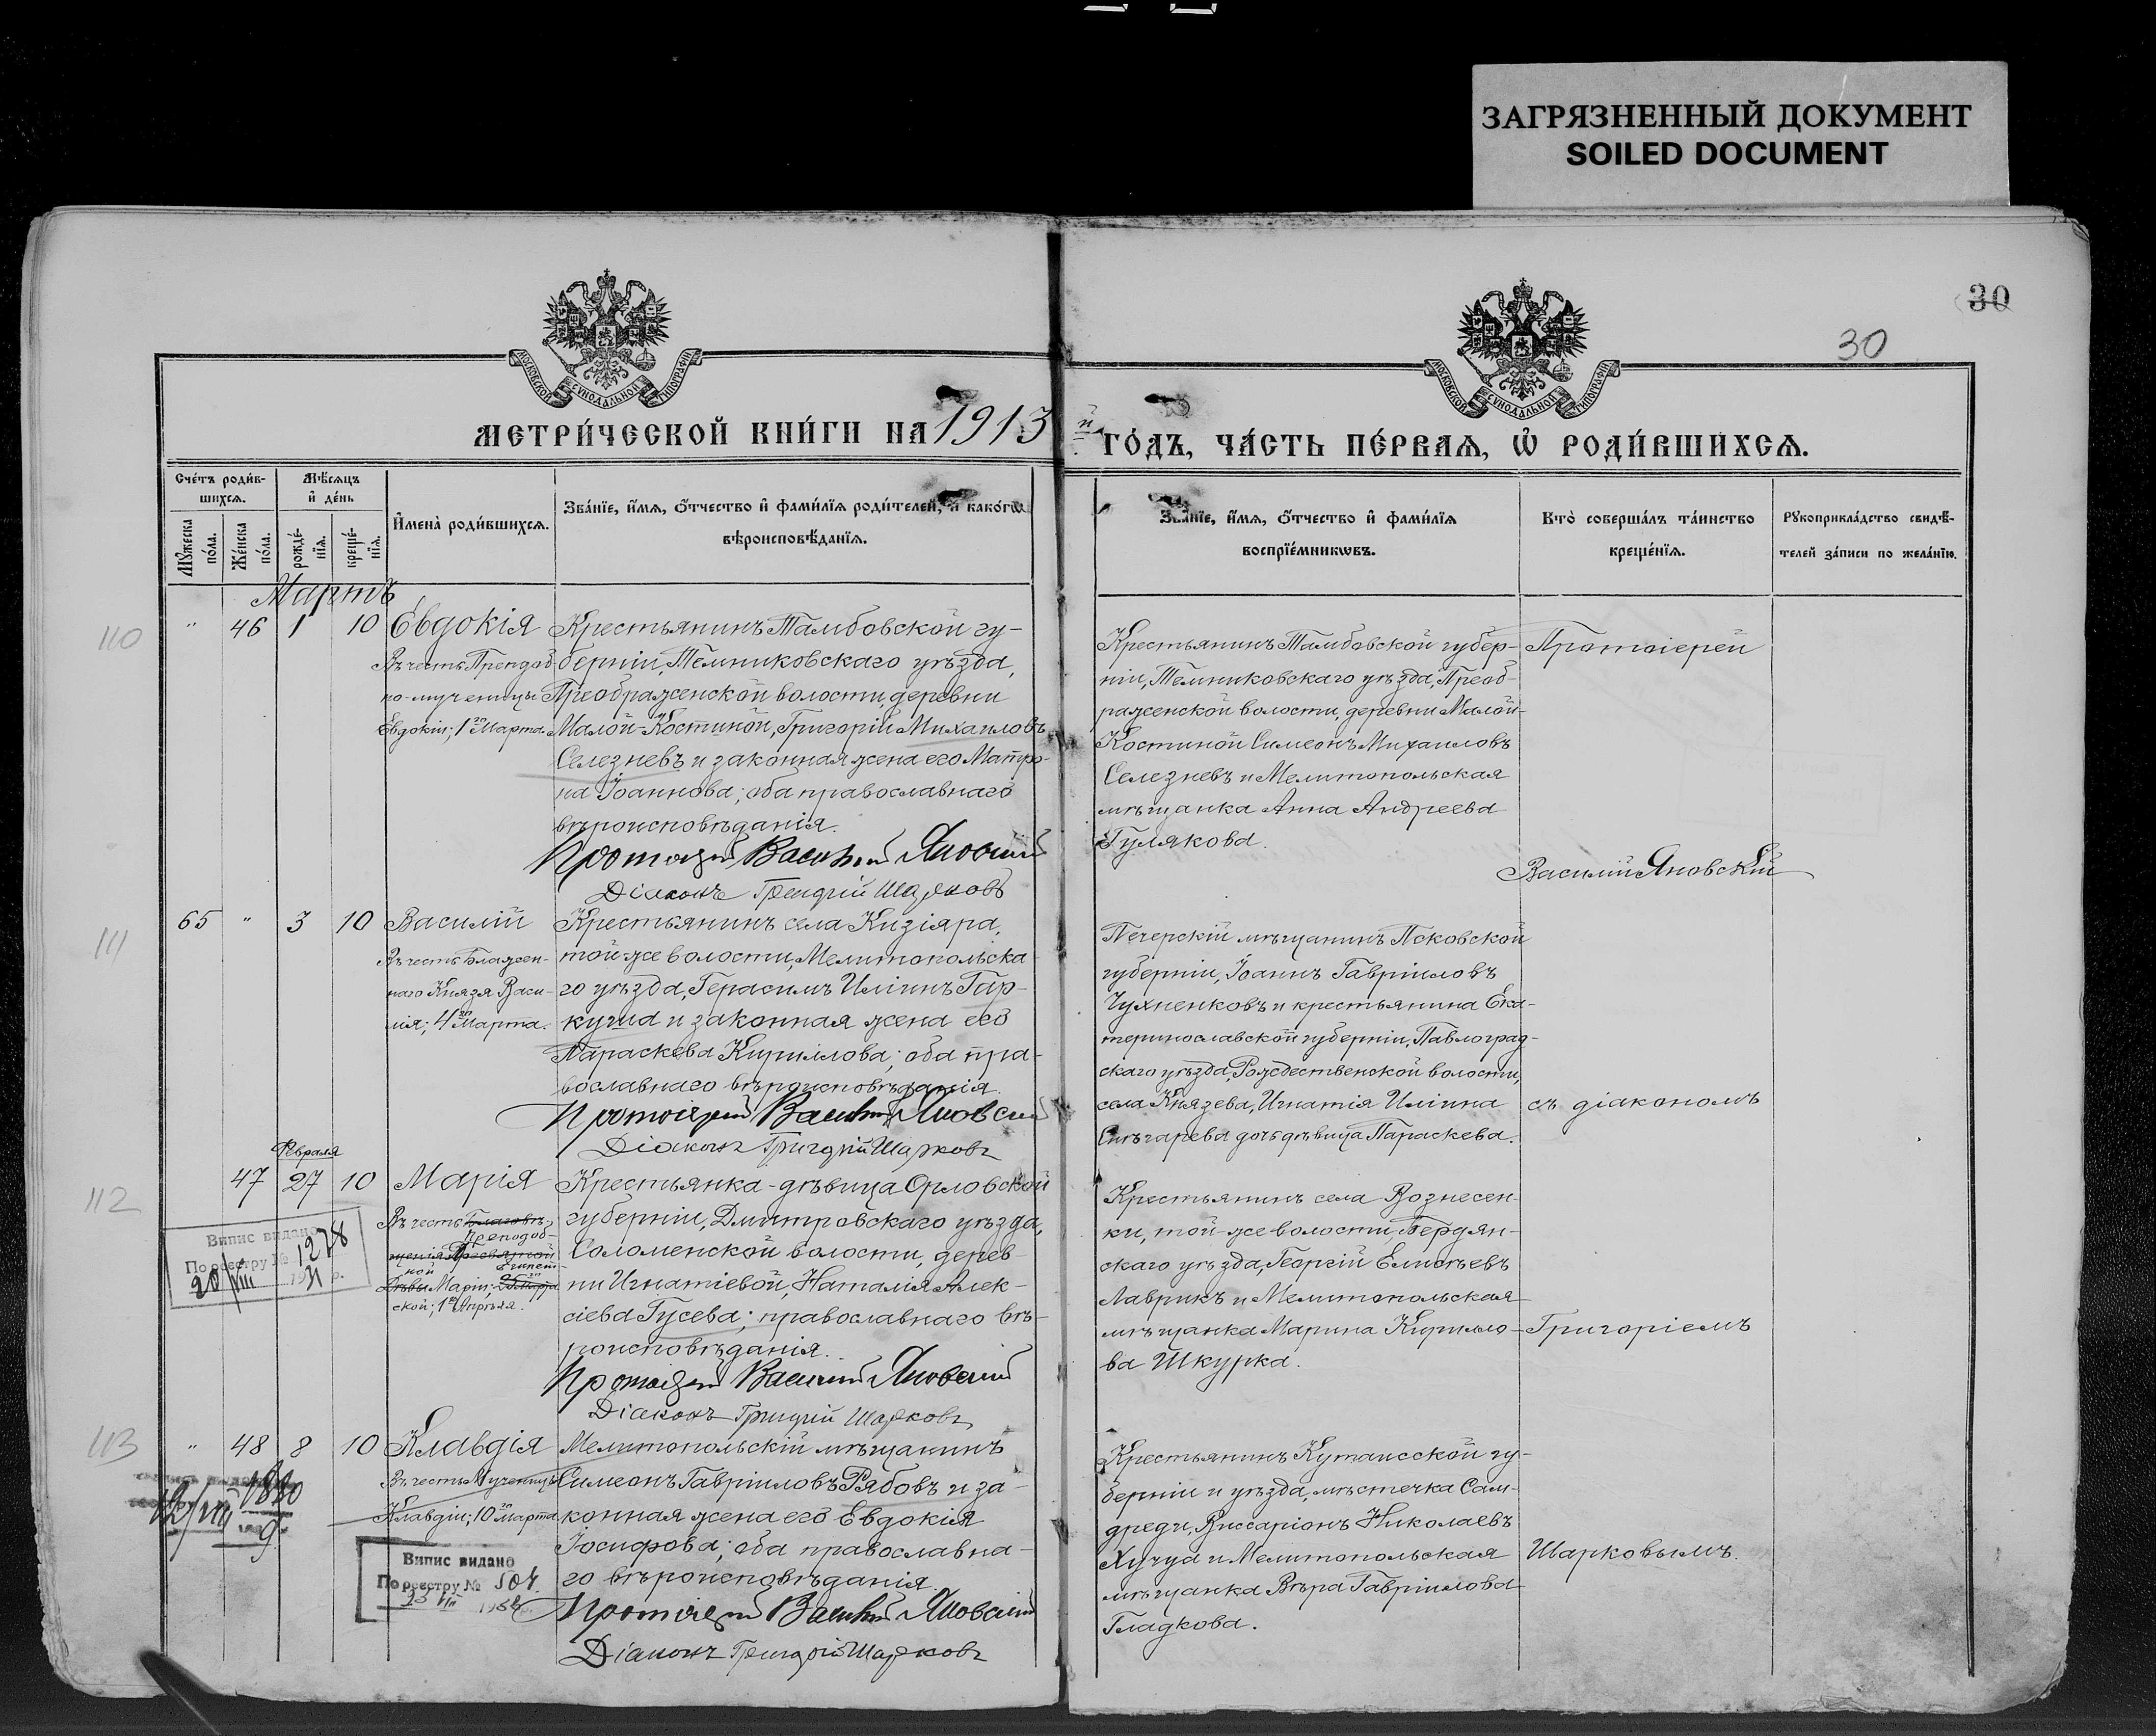 ЗАГРЯЗНЕННЫЙ ДОКУМЕНТ
SOILED DOCUMENT
30
30
МОСКОВСКОЙ СѴНОДАЛЬНОЙ ТИПОГРАФІИ
МОСКОВСКОЙ СѴНОДАЛЬНОЙ ТИПОГРАФІИ
МЕТРИ́ЧЕСКОЙ КНИ́ГИ НА 1913 й ГО́ДЪ, ЧА́СТЬ ПЕ́РВАѦ, Ѡ҆ РОДИ́ВШИХСѦ.
Сче́тъ роди́в-
шихсѧ.
Мѣ́сѧцъ
и҆ де́нь
Мꙋ́жеска по́ла.
Же́нска по́ла.
рожде́-
нїѧ.
креще́-
нїѧ.
И҆мена̀ роди́вшихсѧ.
Зва́нїе, и҆́мѧ, ѻ҆́тчество и҆ фами́лїѧ роди́телей, и҆ како́гѡ
вѣроисповѣ́данїѧ.
Зва́нїе, и҆́мѧ, ѻ҆́тчество и҆ фами́лїѧ
воспрїе́мникѡвъ.
Кто̀ соверша́лъ та́инство
креще́нїѧ.
Рꙋкоприкла́дство свидѣ́-
телей за́писи по жела́нїю.
Мартъ
110
" 46 1 10 Евдокія
Въ честь Преподоб-
но-мученицы
Евдокіи; 1го Марта.
Крестьянинъ Тамбовской гу-
берніи, Темниковскаго уѣзда,
Преображенской волости, деревни
Малой-Костиной, Григорій Михаиловъ
Селезневъ и законная жена его Матро-
на Іоаннова; оба православнаго
вѣроисповѣданія.
Протоіерей Василій Яновскій
Діаконъ Григорій Шарковъ
Крестьянинъ Тамбовской губер-
ніи, Темниковскаго уѣзда, Преоб-
раженской волости, деревни Малой-
Костиной Симеонъ Михаиловъ
Селезневъ и Мелитопольская
мѣщанка Анна Андреева
Гулякова.
Протоіерей
Василій Яновскій
111
65 " 3 10 Василій
Въ честь Блажен-
наго Князя Васи-
лія; 4го Марта.
Крестьянинъ села Кизіяра,
той же волости, Мелитопольска-
го уѣзда, Герасимъ Иліинъ Гар-
куша и законная жена его
Параскева Кириллова; оба пра-
вославнаго вѣроисповѣданія.
Протоіерей Василій Яновскій
Діаконъ Григорій Шарковъ
Печерскій мѣщанинъ Псковской
губерніи, Іоаннъ Гавріиловъ
Чухненковъ и крестьянина Ека-
теринославской губерніи, Павлоград-
скаго уѣзда, Рождественской волости,
села Князева, Игнатія Иліина
Снѣгарева дочь дѣвица Параскева.
съ діакономъ
112
Февраля
47 27 10 Марія
Въ честь Благовѣ-
щенія Пресвятой
Преподоб-
ной Египет-
Дѣвы Маріи;
ской; 1го Апрѣля.
Випис видано
По реєстру № 1278
20/VIII 1931 р.
Крестьянка-дѣвица Орловской
губерніи, Дмитровскаго уѣзда,
Соломенской волости, дерев-
ни Игнатіевой, Наталія Алек-
сіева Гусева; православнаго вѣ-
роисповѣданія.
Протоіерей Василій Яновскій
Діаконъ Григорій Шарковъ
Крестьянинъ села Вознесен-
ки, той-же волости, Бердян-
скаго уѣзда, Георгій
Лаврикъ и Мелитопольская
мѣщанка Марина Кирилло-
ва Шкурка.
Григоріемъ
113
" 48 8 10 Клавдія
Въ честь Мученицы
Клавдіи; 10го Марта
Випис видано
По реєстру № 504.
Мелитопольскій мѣщанинъ
Симеонъ Гавріиловъ Рябовъ и за-
конная жена его Евдокія
Іосифова; оба православна-
го вѣроисповѣданія.
Протоіерей Василій Яновскій
Діаконъ Григорій Шарковъ
Крестьянинъ Кутаисской гу-
берніи и уѣзда, мѣстечка Сам-
тредіи, Виссаріонъ Николаевъ
Хучуа и Мелитопольская
мѣщанка Вѣра Гавріилова
Гладкова.
Шарковымъ.